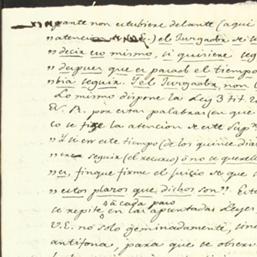 "pante non estubiere delante (aqui
"atencion) el Jurgador
"decir eso mismo, si quisiere seg
"despues que es pasado el tiempo
"ria seguir. I el Jurgador, non
Lo mismo dispone la Ley 3 tit. 2
E. R. por estas palabras (en que
co se fige la atencion de este Sup
"I si en este tiempo (de los quince dias
seguir (el recurso) ó no se querell
finque firme el juicio
"estos plazos que dichos son". Est
á cada paso
se repite en las apuntadas Leyes,
V.E. no solo geminadamente, sino
antifona, para que se observ